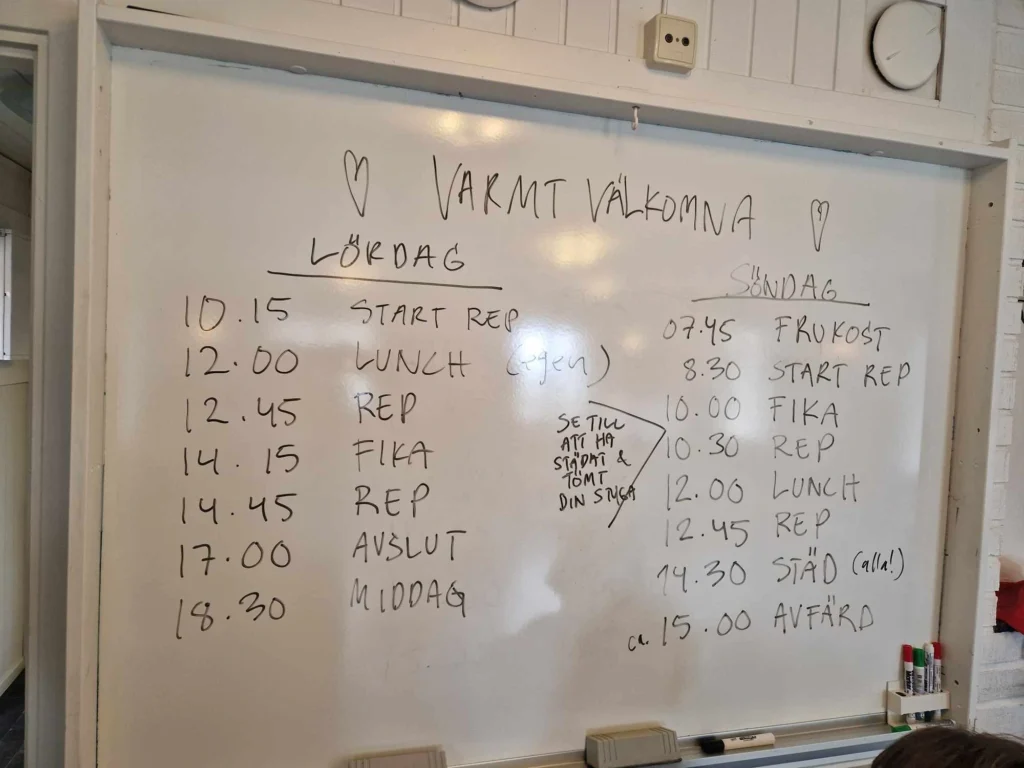 ♡ VARMT VÄLKOMNA ♡
LÖRDAG
10.15 START REP
12.00 LUNCH (egen)
12.45 REP
14.15 FIKA
14.45 REP
17.00 AVSLUT
18.30 MIDDAG
SE TILL
ATT HA
STÄDAT &
TÖMT
DIN STUGA
SÖNDAG
07.45 FRUKOST
8.30 START REP
10.00 FIKA
10.30 REP
12.00 LUNCH
12.45 REP
14.30 STÄD (alla!)
ca. 15.00 AVFÄRD